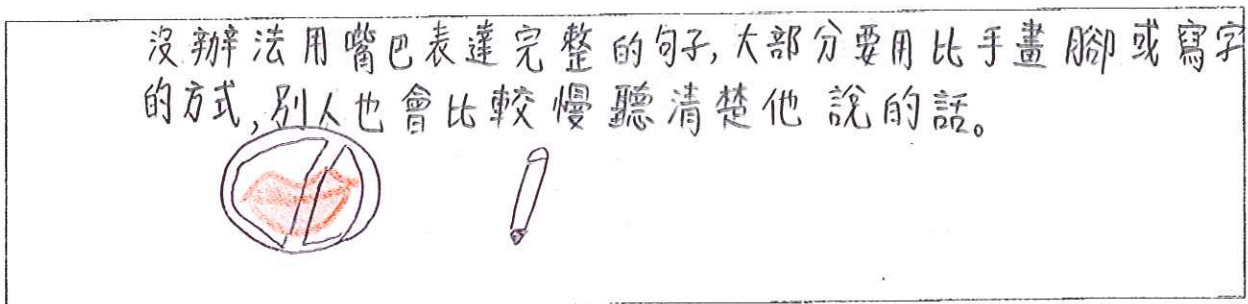 沒辦法用嘴巴表達完整的句子,大部分要用比手畫腳或寫字
的方式,別人也會比較慢聽清楚他說的話。